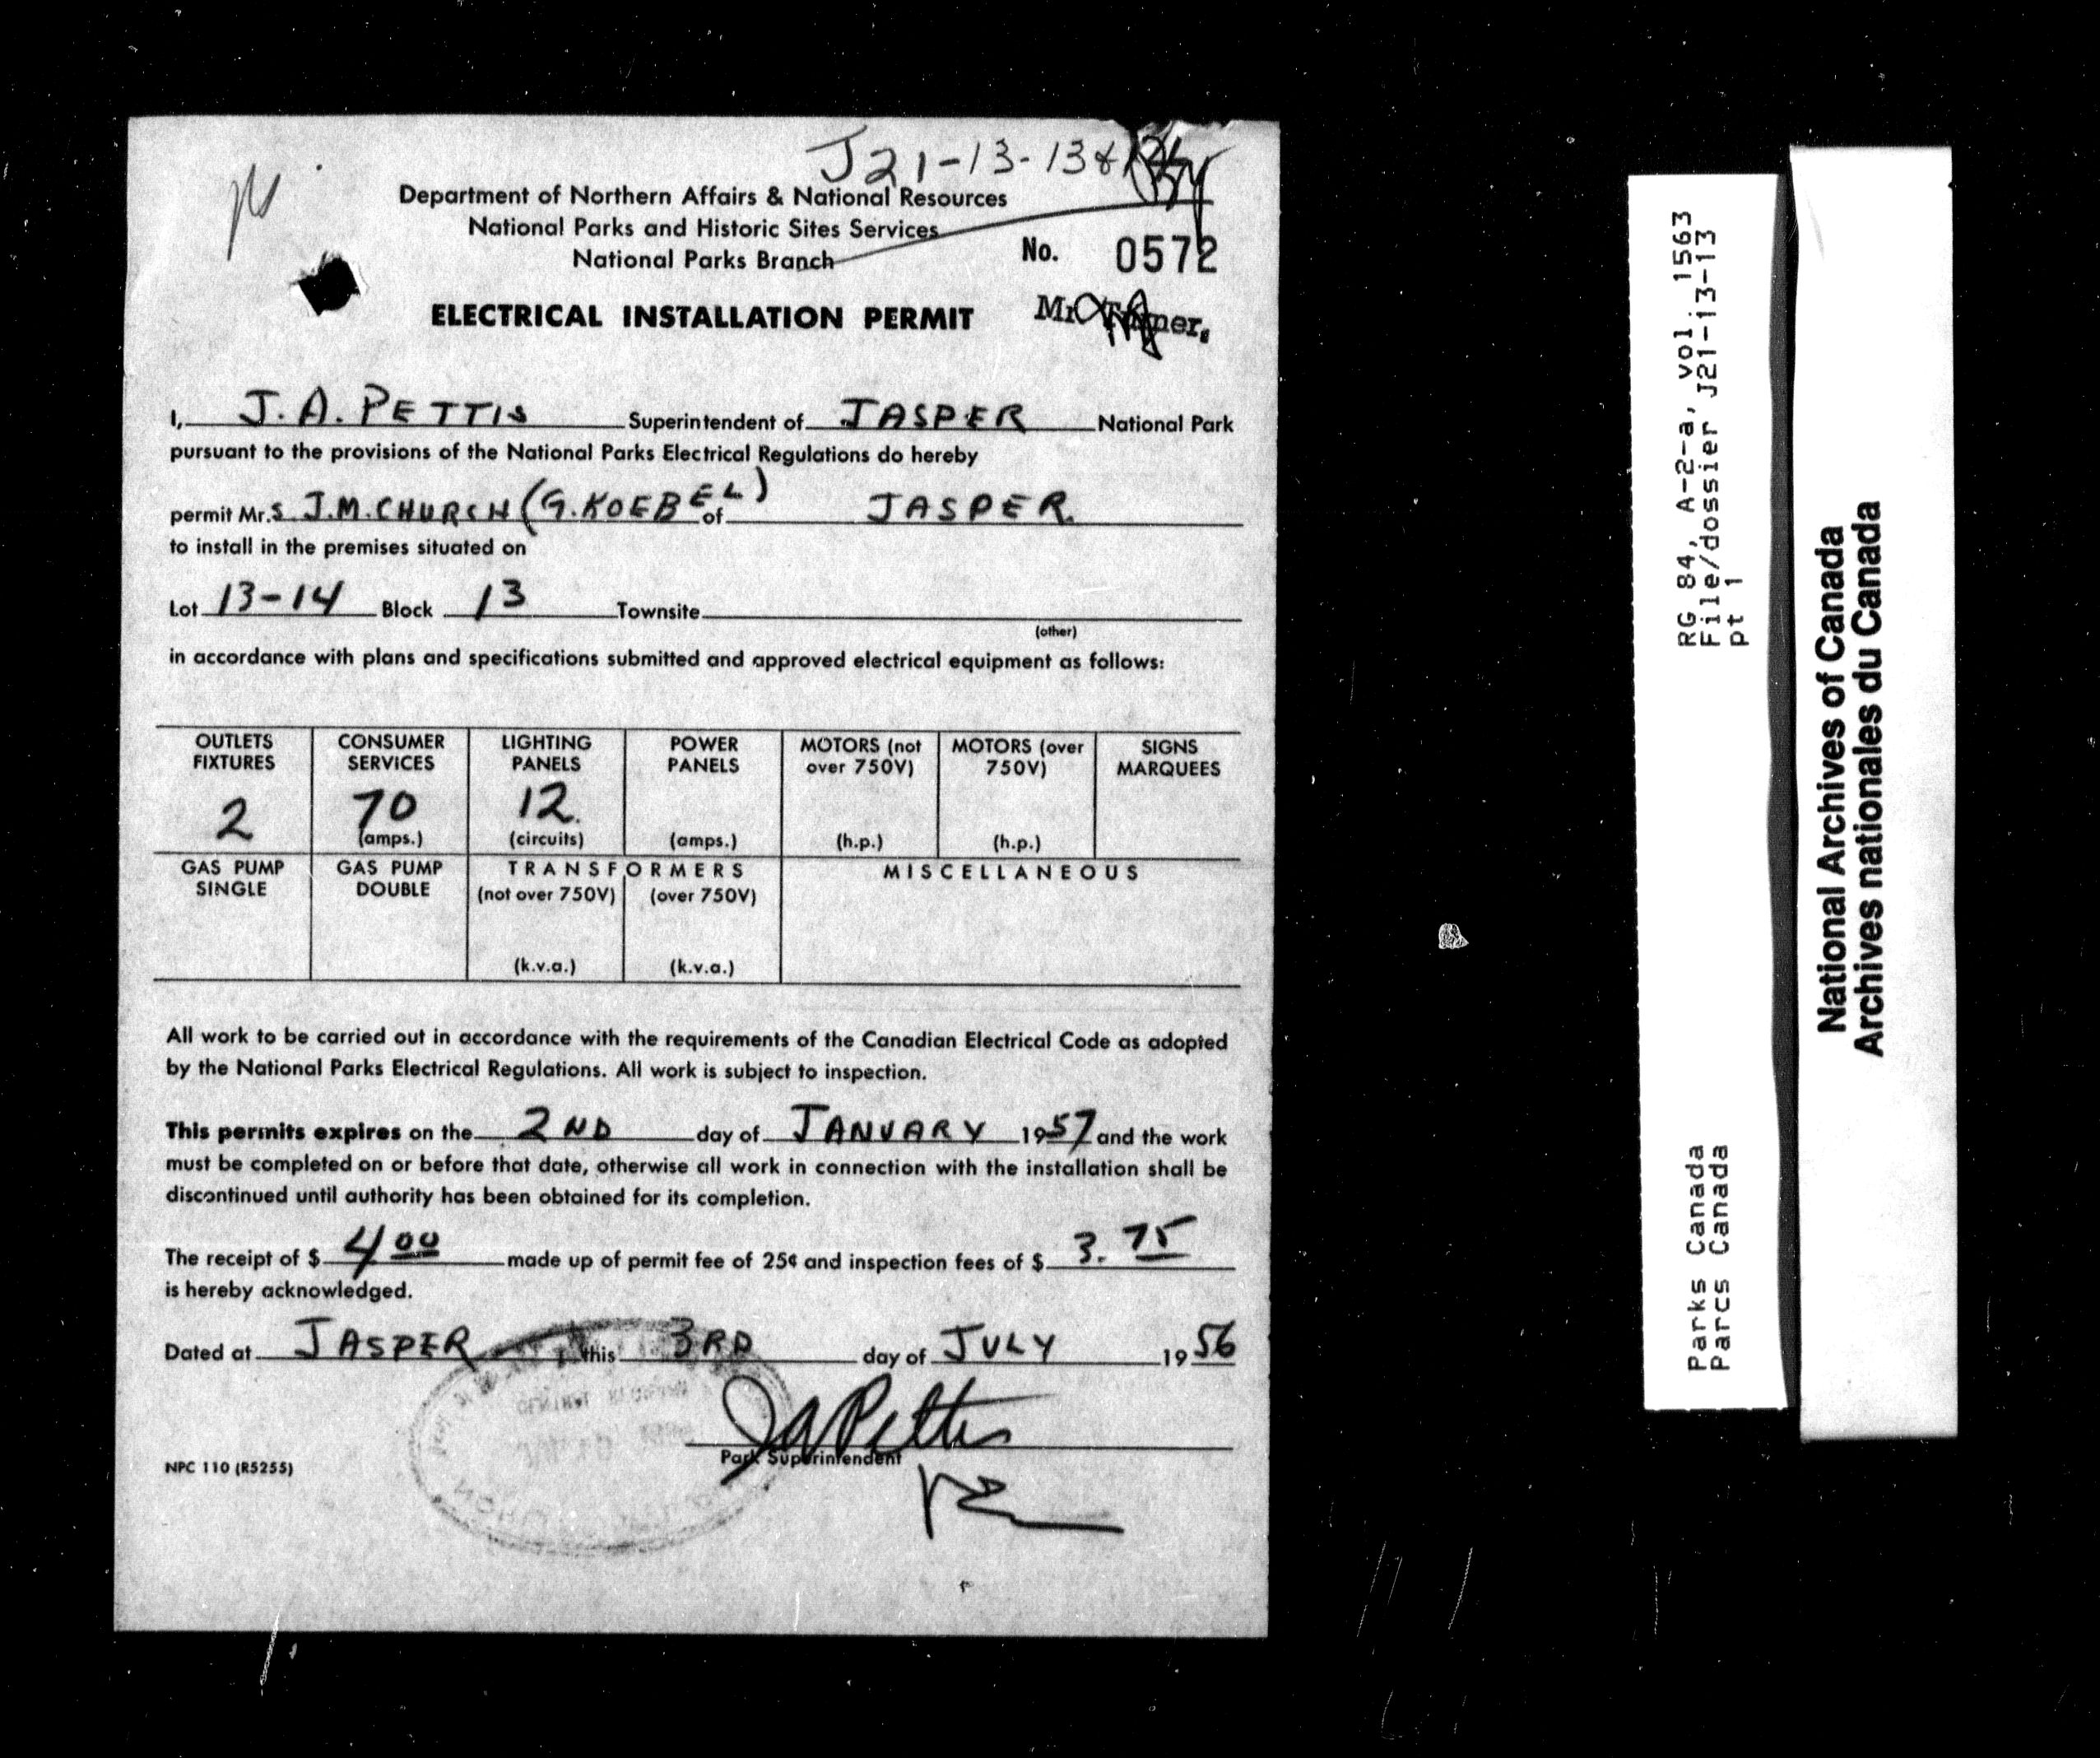 J21-13-13&14
Department of Northern Affairs & National Resources
National Parks and Historic Sites Services
National Parks Branch
No. 0572
ELECTRICAL INSTALLATION PERMIT
Mr.
I, J. A. PETTIS Superintendent of JASPER National Park
pursuant to the provisions of the National Parks Electrical Regulations do hereby
permit Mr.s J.M. CHURCH (G. KOEBEL) of JASPER.
to install in the premises situated on
Lot 13-14 Block 13 Townsite
(other)
in accordance with plans and specifications submitted and approved electrical equipment as follows:
OUTLETS FIXTURES 2
CONSUMER SERVICES 70 (amps.)
LIGHTING PANELS 12. (circuits)
POWER PANELS (amps.)
MOTORS (not over 750V) (h.p.)
MOTORS (over 750V) (h.p.)
SIGNS MARQUEES
GAS PUMP SINGLE
GAS PUMP DOUBLE
TRANSFORMERS
(not over 750V) (k.v.a.)
(over 750V) (k.v.a.)
MISCELLANEOUS
All work to be carried out in accordance with the requirements of the Canadian Electrical Code as adopted
by the National Parks Electrical Regulations. All work is subject to inspection.
This permits expires on the 2ND day of JANUARY 1957 and the work
must be completed on or before that date, otherwise all work in connection with the installation shall be
discontinued until authority has been obtained for its completion.
The receipt of $ 4 00 made up of permit fee of 25¢ and inspection fees of $ 3. 75
is hereby acknowledged.
Dated at JASPER this 3RD day of JULY 1956
JA Pettis
Park Superintendent
NPC 110 (R5255)
RG 84, A-2-a, vol. 1563
File/dossier J21-13-13
pt 1
Parks Canada
Parcs Canada
National Archives of Canada
Archives nationales du Canada